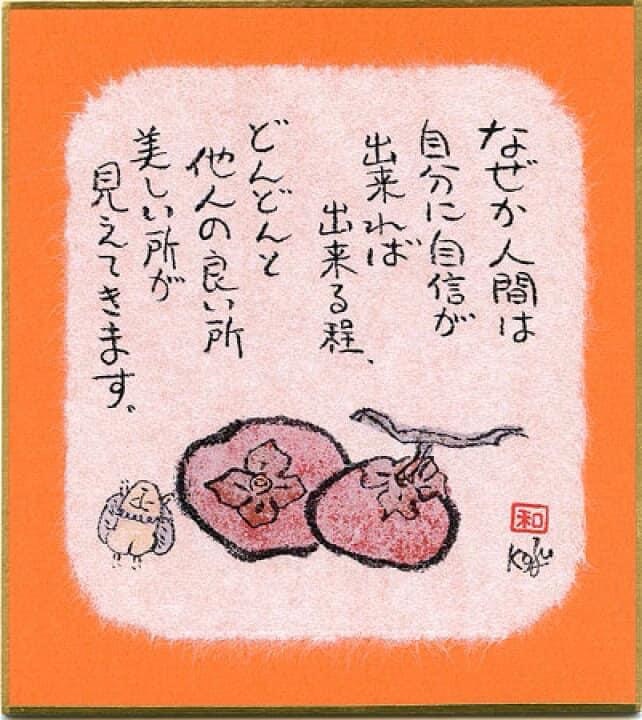 なぜか人間は
自分に自信が
出来れば
出来る程、
どんどんと
他人の良い所
美しい所が
見えてきます。
和
Kofu